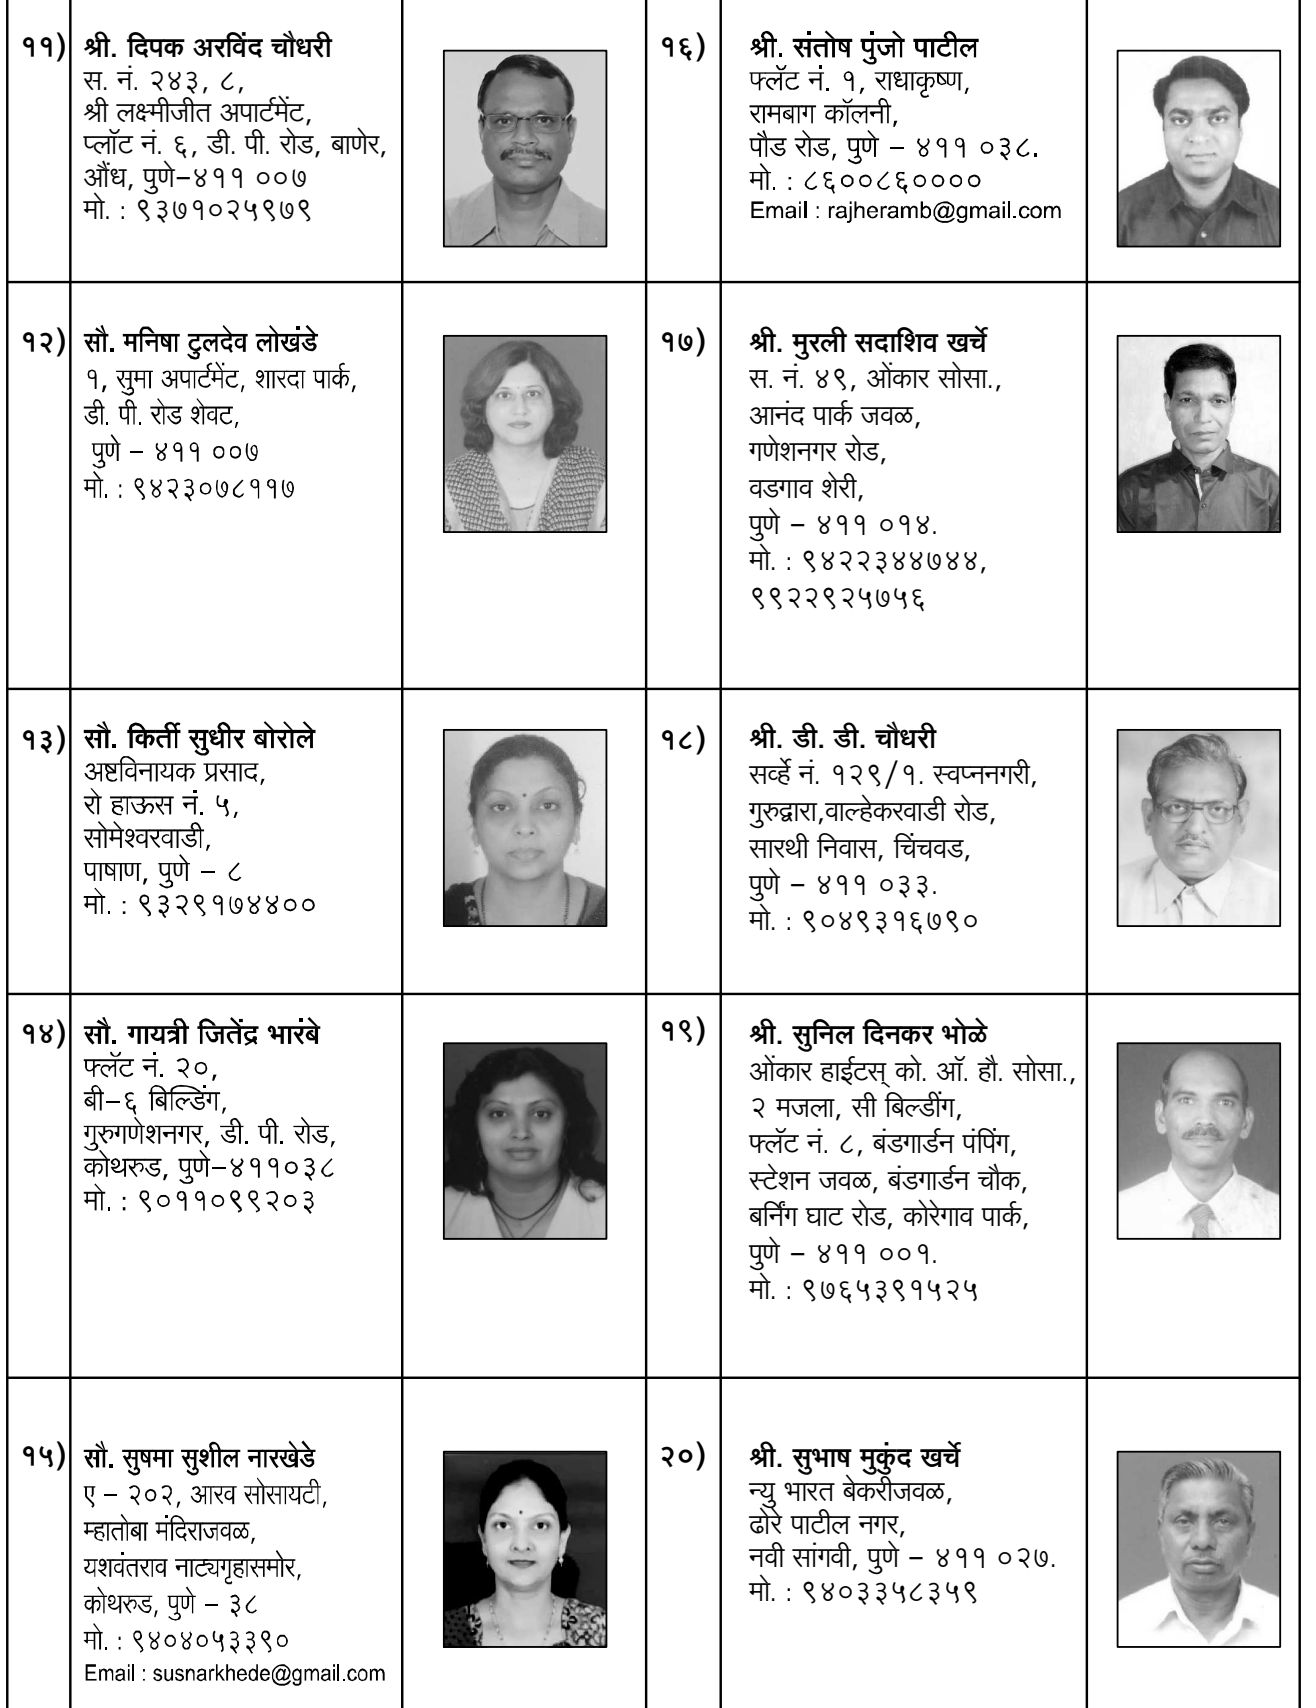 ११)
श्री. दिपक अरविंद चौधरी
स. नं. २४३, ८,
श्री लक्ष्मीजीत अपार्टमेंट,
प्लॉट नं. ६, डी. पी. रोड, बाणेर,
औंध, पुणे–४११ ००७
मो. : ९३७१०२५९७९
१२)
सौ. मनिषा टुलदेव लोखंडे
१, सुमा अपार्टमेंट, शारदा पार्क,
डी. पी. रोड शेवट,
पुणे – ४११ ००७
मो. : ९४२३०७८११७
१३)
सौ. किर्ती सुधीर बोरोले
अष्टविनायक प्रसाद,
रो हाऊस नं. ५,
सोमेश्वरवाडी,
पाषाण, पुणे – ८
मो. : ९३२९१७४४००
१४)
सौ. गायत्री जितेंद्र भारंबे
फ्लॅट नं. २०,
बी–६ बिल्डिंग,
गुरुगणेशनगर, डी. पी. रोड,
कोथरुड, पुणे–४११०३८
मो. : ९०११०९९२०३
१५)
सौ. सुषमा सुशील नारखेडे
ए – २०२, आरव सोसायटी,
म्हातोबा मंदिराजवळ,
यशवंतराव नाट्यगृहासमोर,
कोथरुड, पुणे – ३८
मो. : ९४०४०५३३९०
Email : susnarkhede@gmail.com
१६)
श्री. संतोष पुंजो पाटील
फ्लॅट नं. १, राधाकृष्ण,
रामबाग कॉलनी,
पौड रोड, पुणे – ४११ ०३८.
मो. : ८६००८६००००
Email : rajheramb@gmail.com
१७)
श्री. मुरली सदाशिव खर्चे
स. नं. ४९, ओंकार सोसा.,
आनंद पार्क जवळ,
गणेशनगर रोड,
वडगाव शेरी,
पुणे – ४११ ०१४.
मो. : ९४२२३४४७४४,
९९२२९२५७५६
१८)
श्री. डी. डी. चौधरी
सर्व्हे नं. १२९/१. स्वप्ननगरी,
गुरुद्वारा,वाल्हेकरवाडी रोड,
सारथी निवास, चिंचवड,
पुणे – ४११ ०३३.
मो. : ९०४९३१६७९०
१९)
श्री. सुनिल दिनकर भोळे
ओंकार हाईटस् को. ऑ. हौ. सोसा.,
२ मजला, सी बिल्डींग,
फ्लॅट नं. ८, बंडगार्डन पंपिंग,
स्टेशन जवळ, बंडगार्डन चौक,
बर्निंग घाट रोड, कोरेगाव पार्क,
पुणे – ४११ ००१.
मो. : ९७६५३९१५२५
२०)
श्री. सुभाष मुकुंद खर्चे
न्यु भारत बेकरीजवळ,
ढोरे पाटील नगर,
नवी सांगवी, पुणे – ४११ ०२७.
मो. : ९४०३३५८३५९